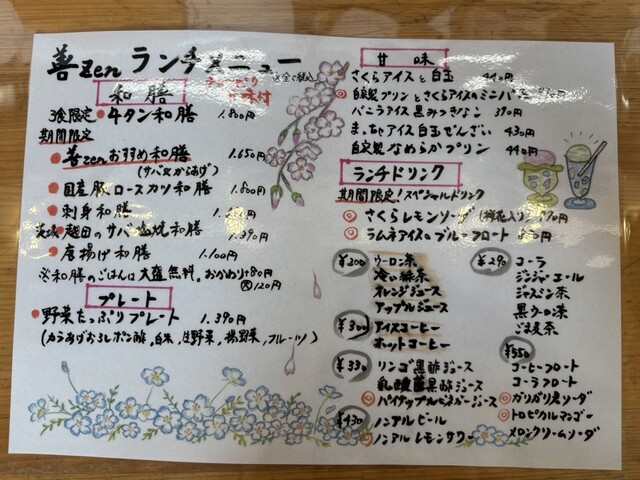 善zen ランチメニュー
全て税込
味付
和膳
3食限定 牛タン和膳 1.800円
期間限定
善zenおすすめ和膳 1.650円
(サバ又からあげ)
国産豚ロースカツ和膳 1.800円
刺身和膳
茨城 越田のサバ塩焼和膳 1.390円
唐揚げ和膳 1.100円
※和膳のごはんは大盛無料。おかわり+80円
大120円
プレート
野菜たっぷりプレート 1.390円
(カラあげおろしポン酢,白米,生野菜,揚野菜,フルーツ)
甘味
さくらアイスと白玉 440円
自家製プリンとさくらアイスのミニパフェ
バニラアイス黒みつきなこ 390円
まっ茶アイス白玉ぜんざい 430円
自家製なめらかプリン 440円
ランチドリンク
期間限定!スペシャルドリンク
さくらレモンソーダ(桜花入り)
ラムネアイスのブルーフロート
¥200 ウーロン茶
冷い緑茶
オレンジジュース
アップルジュース
¥300 アイスコーヒー
ホットコーヒー
¥330 リンゴ黒酢ジュース
乳酸菌黒酢ジュース
パイナップルビネガージュース
¥430 ノンアルビール
ノンアルレモンサワー
¥290 コーラ
ジンジャーエール
ジャスミン茶
黒ウーロン茶
ごま麦茶
¥550
コーヒーフロート
コーラフロート
ガリガリ君ソーダ
トロピカルマンゴー
メロンクリームソーダ